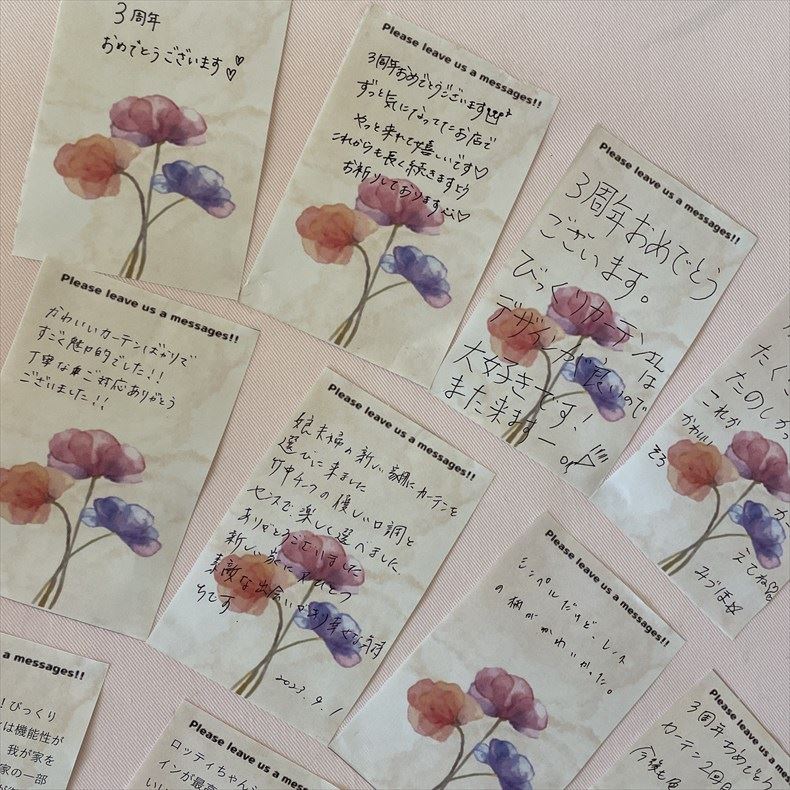 3周年
おめでとうございます♡♡
Please leave us a messages!!
3周年おめでとうございます
ずっと気になってたお店で
やっと来れて嬉しいです♡
これからも長く続きますよう
お祈りしております♡
Please leave us a messages!!
3周年おめでとう
ございます。
びっくりカーテンさんは
デザインが良いので
大好きです、
また来ますー
Please leave us a messages!!
かわいいカーテンばかりで
すごく魅力的でした!!
丁寧なご対応ありがとう
ございました!!
Please leave us a messages!!
娘夫婦の新しい新居にカーテンを
選びに来ました
竹中チーフの優しい口調と
センスで楽しく選べました、
ありがとうございました
新しい家に
素敵な出会いがあり幸せな
です
2023.9.1
たく
たのしか
これか
かわいい
えてね
みづほ
Please leave us a messages!!
シンプルだけど、レース
の柄がかわいかった。
a messages!!
!びっくり
は機能性が
我が家を
家の一部
Please leave us a messa
ロッティちゃん
インが最
Please leave us
3周年おめでとう
カーテン2回目
今後も